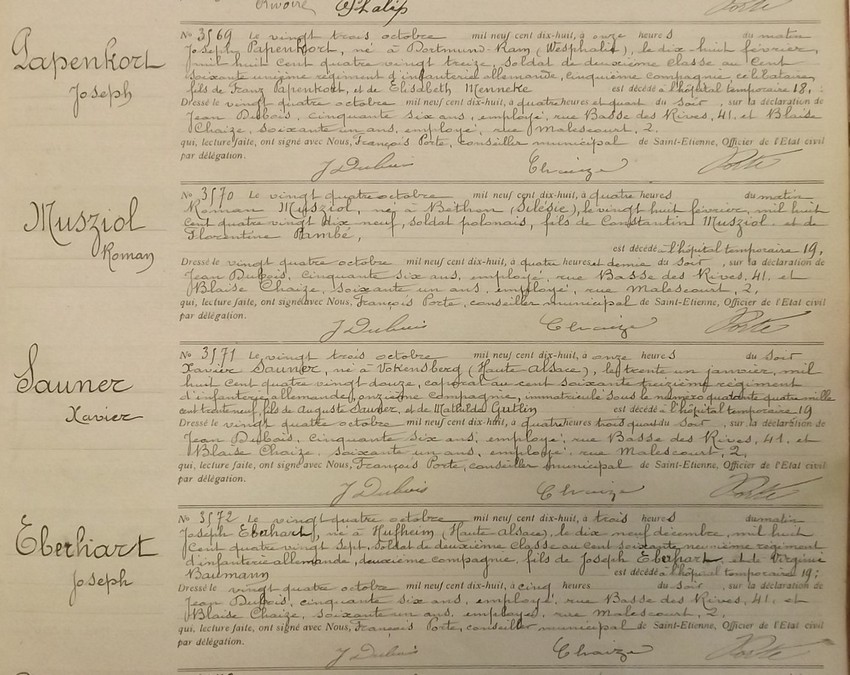 Papenkort
Joseph
No 3569 Le vingt trois octobre mil neuf cent dix-huit, à onze heures du matin
Joseph Papenkort, né à Dortmund-Ram (Westphalie), le dix huit février,
mil huit cent quatre vingt treize, soldat de deuxième classe au cent
soixante unième régiment d'infanterie allemande, cinquième compagnie célibataire,
fils de Franz Papenkort, et de Elisabeth Menneke est décédé à l'hôpital temporaire 18,
Dressé le vingt quatre octobre mil neuf cent dix-huit, à quatre heures et quart du soir, sur la déclaration de
Jean Dubois, cinquante six ans, employé, rue Basse des Rives, 41, et Blaise
Chaize, soixante un ans, employé, rue Malescourt, 2,
qui, lecture faite, ont signé avec Nous, François Porte, conseiller municipal de Saint-Etienne, Officier de l'Etat civil
par délégation.
J Dubois Chaize Porte
Musziol
Roman
No 3570 Le vingt quatre octobre mil neuf cent dix-huit, à quatre heures du matin
Roman Musziol, né à Bêthon (Silésie), le vingt huit février, mil huit
cent quatre vingt dix neuf, soldat polonais, fils de Constantin Musziol et de
Florentine Pambé,
est décédé à l'hôpital temporaire 19,
Dressé le vingt quatre octobre mil neuf cent dix-huit, à quatre heures et demie du soir, sur la déclaration de
Jean Dubois, cinquante six ans, employé, rue Basse des Rives, 41, et
Blaise Chaize, soixante un ans, employé, rue Malescourt, 2,
qui, lecture faite, ont signé avec Nous, François Porte, conseiller municipal de Saint-Etienne, Officier de l'Etat civil
par délégation.
J Dubois Chaize Porte
Sauner
Xavier
No 3571 Le vingt trois octobre mil neuf cent dix-huit, à onze heures du soir
Xavier Sauner, né à Vokensberg (Haute-Alsace), le trente un janvier, mil
huit cent quatre vingt douze, caporal au cent soixante treizième régiment
d'infanterie allemande, onzième compagnie, immatriculé sous le numéro quarante quatre mille
cent trente neuf, fils de Auguste Sauner, et de Mathilde Gutlin est décédé à l'hôpital temporaire 19
Dressé le vingt quatre octobre mil neuf cent dix-huit, à quatre heures trois quart du soir, sur la déclaration de
Jean Dubois, cinquante six ans, employé, rue Basse des Rives, 41, et
Blaise Chaize, soixante un ans, employé, rue Malescourt, 2,
qui, lecture faite, ont signé avec Nous, François Porte, conseiller municipal de Saint-Etienne, Officier de l'Etat civil
par délégation.
J Dubois Chaize Porte
Eberhart
Joseph
No 3572 Le vingt quatre octobre mil neuf cent dix-huit, à trois heures du matin
Joseph Eberhart, né à Hufheim (Haute-Alsace), le dix neuf décembre, mil huit
cent quatre vingt sept, soldat de deuxième classe au cent soixante neuvième régiment
d'infanterie allemande, deuxième compagnie, fils de Joseph Eberhart et de Virginie
Baumann est décédé à l'hôpital temporaire 19;
Dressé le vingt quatre octobre mil neuf cent dix-huit, à cinq heures du soir, sur la déclaration de
Jean Dubois, cinquante six ans, employé, rue Basse des Rives, 41, et
Blaise Chaize, soixante un ans, employé, rue Malescourt, 2,
qui, lecture faite, ont signé avec Nous, François Porte, conseiller municipal de Saint-Etienne, Officier de l'Etat civil
par délégation.
J Dubois Chaize Porte